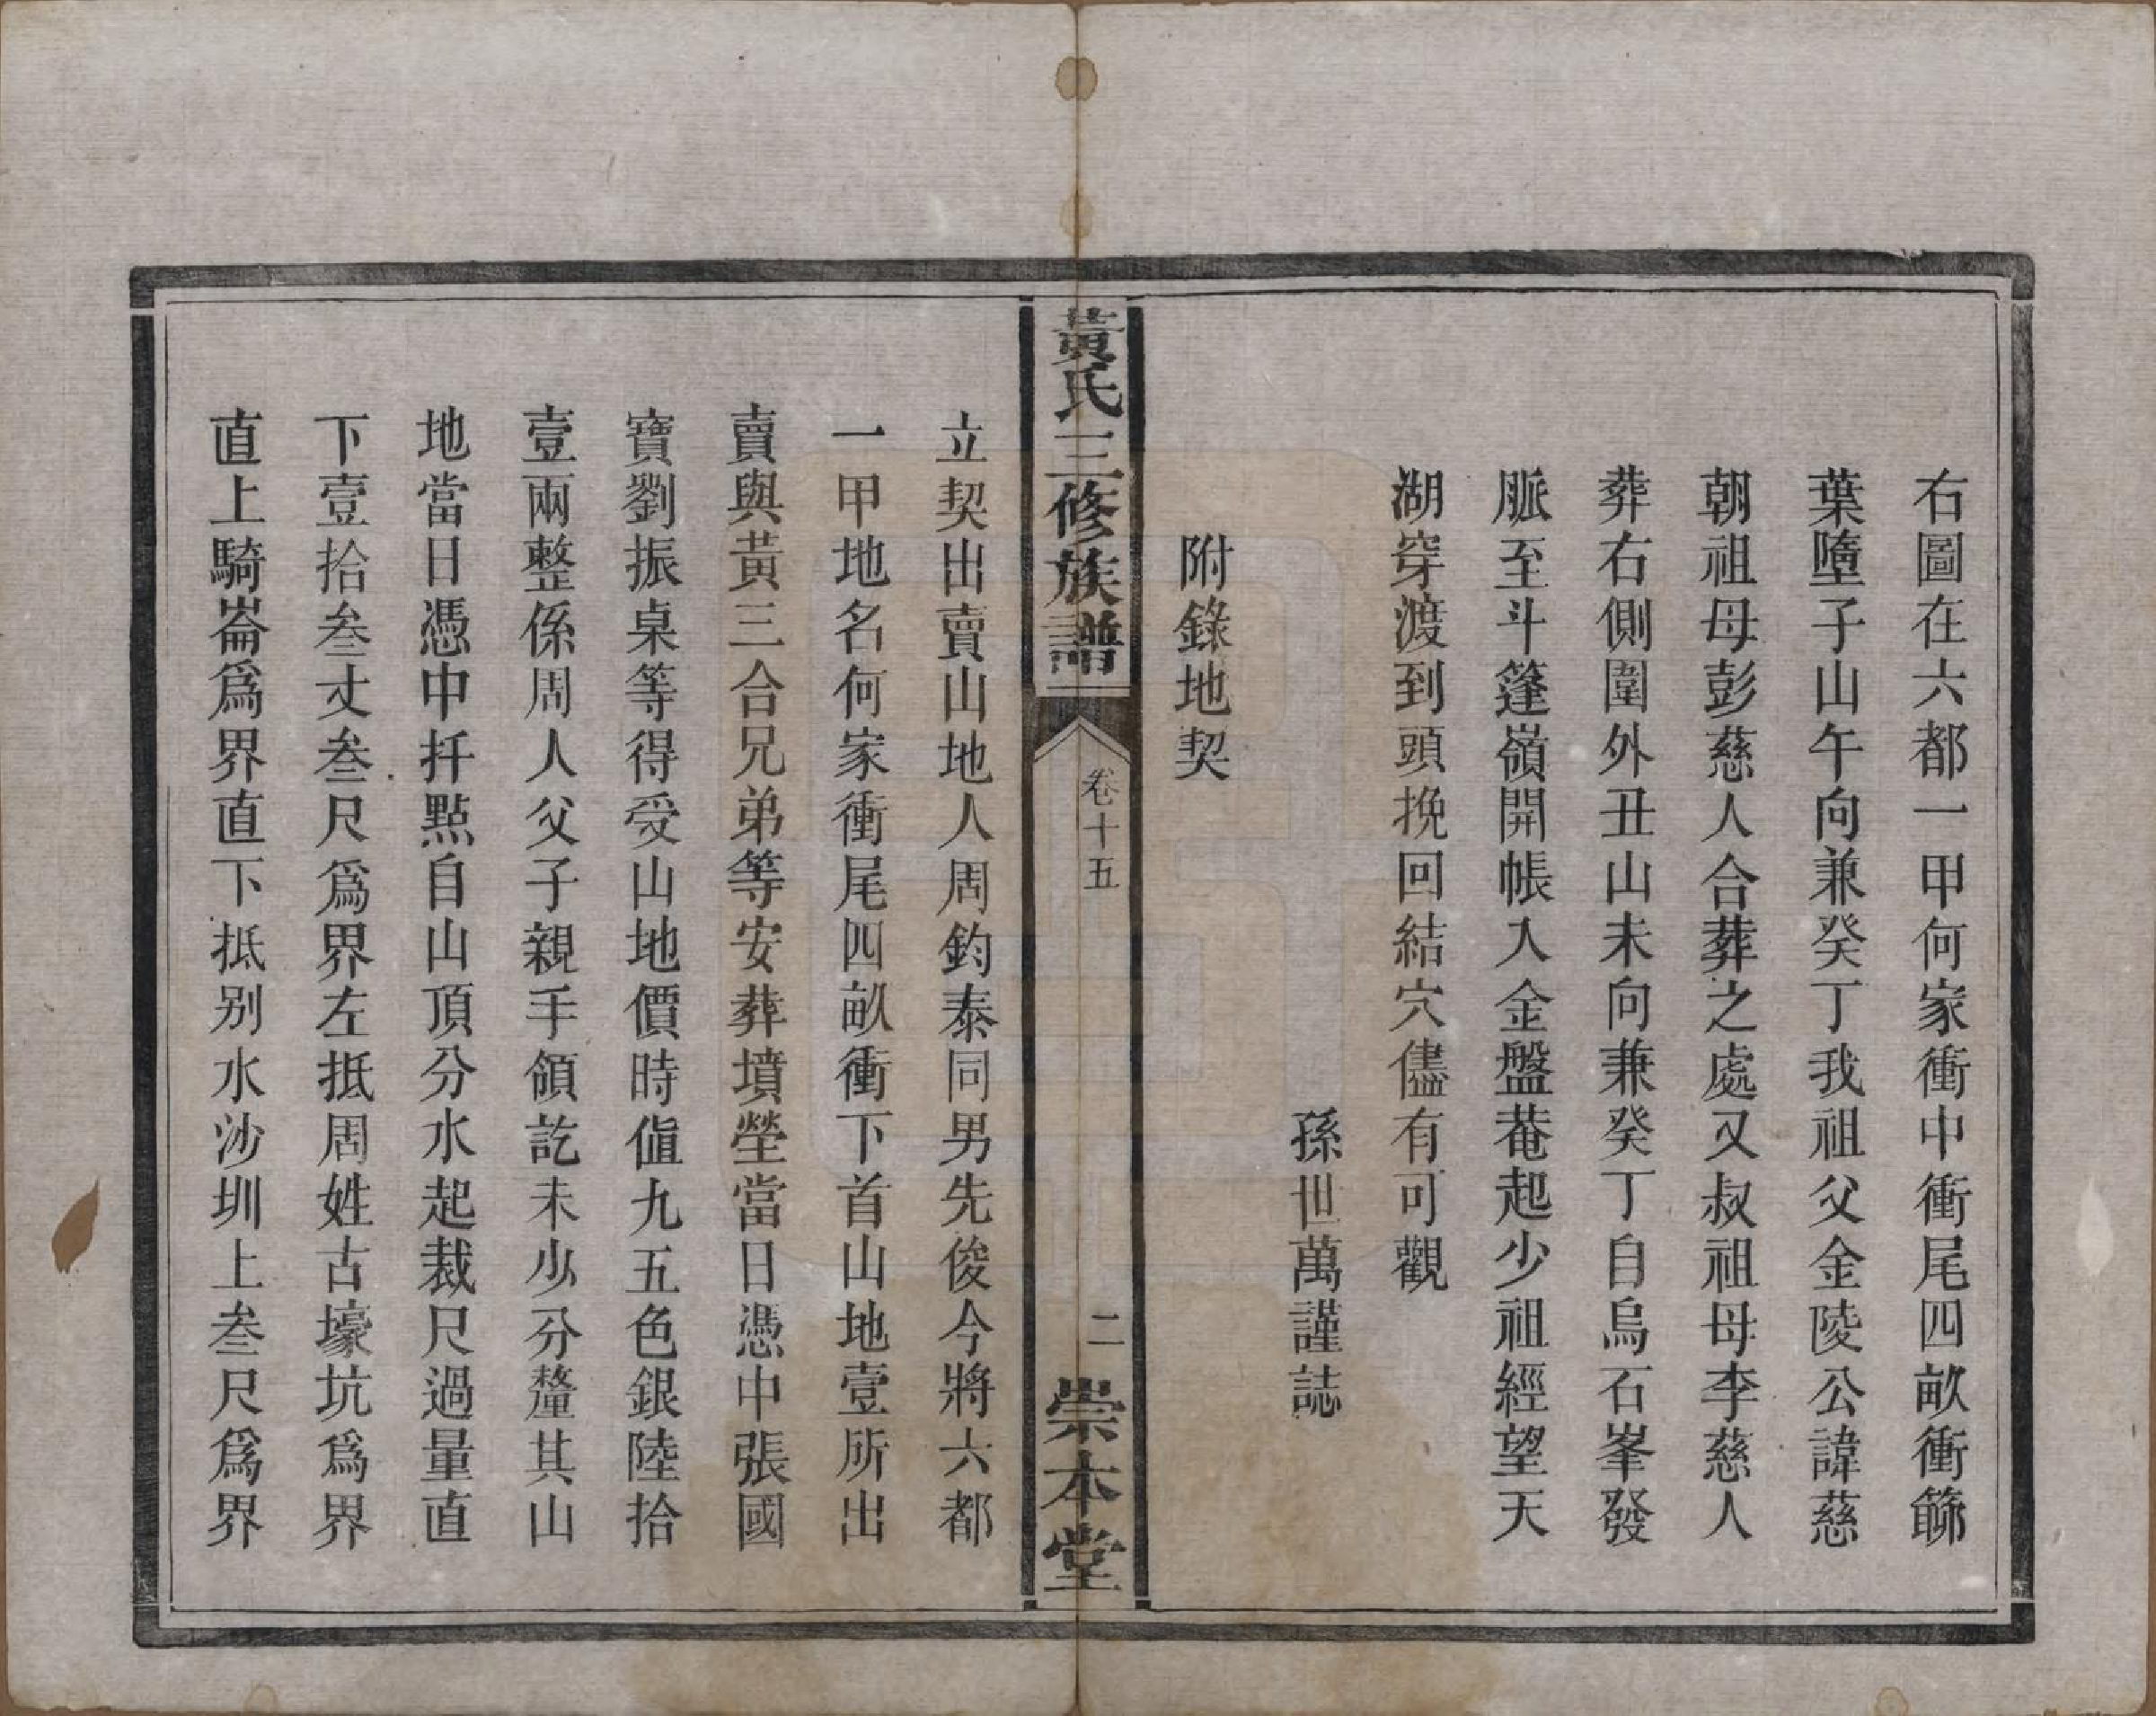 右圖在六都一甲何家衝中衝尾四畝衝篩
葉墮子山午向兼癸丁我祖父金陵公諱慈
朝祖母彭慈人合葬之處又叔祖母李慈人
葬右側圍外丑山未向兼癸丁自烏石峯發
脈至斗篷嶺開帳入金盤菴起少祖經望天
湖穿渡到頭挽回結穴儘有可觀
孫世萬謹誌
附錄地契
黃氏三修族譜
卷十五
二
崇本堂
立契出賣山地人周鈞泰同男先俊今將六都
一甲地名何家衝尾四畝衝下首山地壹所出
賣與黃三合兄弟等安葬墳塋當日憑中張國
寶劉振桌等得受山地價時值九五色銀陸拾
壹兩整係周人父子親手領訖未少分釐其山
地當日憑中扦點自山頂分水起裁尺過量直
下壹拾叁丈叁尺爲界左抵周姓古壕坑爲界
直上騎崙爲界直下抵別水沙圳上叁尺爲界